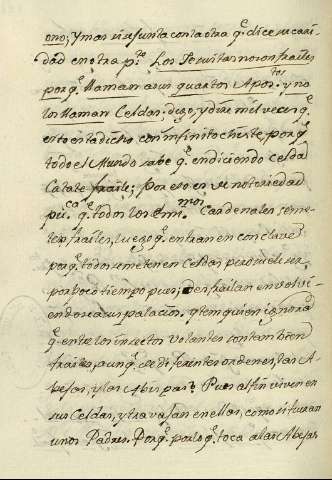 ono; Y mas si se junta con la otra q.e dice su cari-
dad en otra p.te Los Jesuitas no son frailes
porq.e llaman a sus quartos Apos.tos y no
los llaman Celdas: digo, y diré mil veces q.e
esto está dicho con infinito chiste, porq.e
todo el Mundo sabe q.e en diciendo celda
Catate fraile; Por eso es de notoriedad
pu.ca q.e todos los Em.mos Cardenales se me-
ten frailes, luego q.e entran en conclave
porq.e todos se meten en Celdas pero suele ser
por poco tiempo pues, desfrailan en volvi-
endose a sus palacios. Y tem quien ignora
q.e entre los insectos volantes son tambien
frailes, aunq.e de diferentes ordenes, las A-
bejas, y las Abispas? Pues al fin viven en
sus Celdas, y travajan en ellas, como si fueran
unos Padres. Porq.e por lo q.e toca a las Abejas